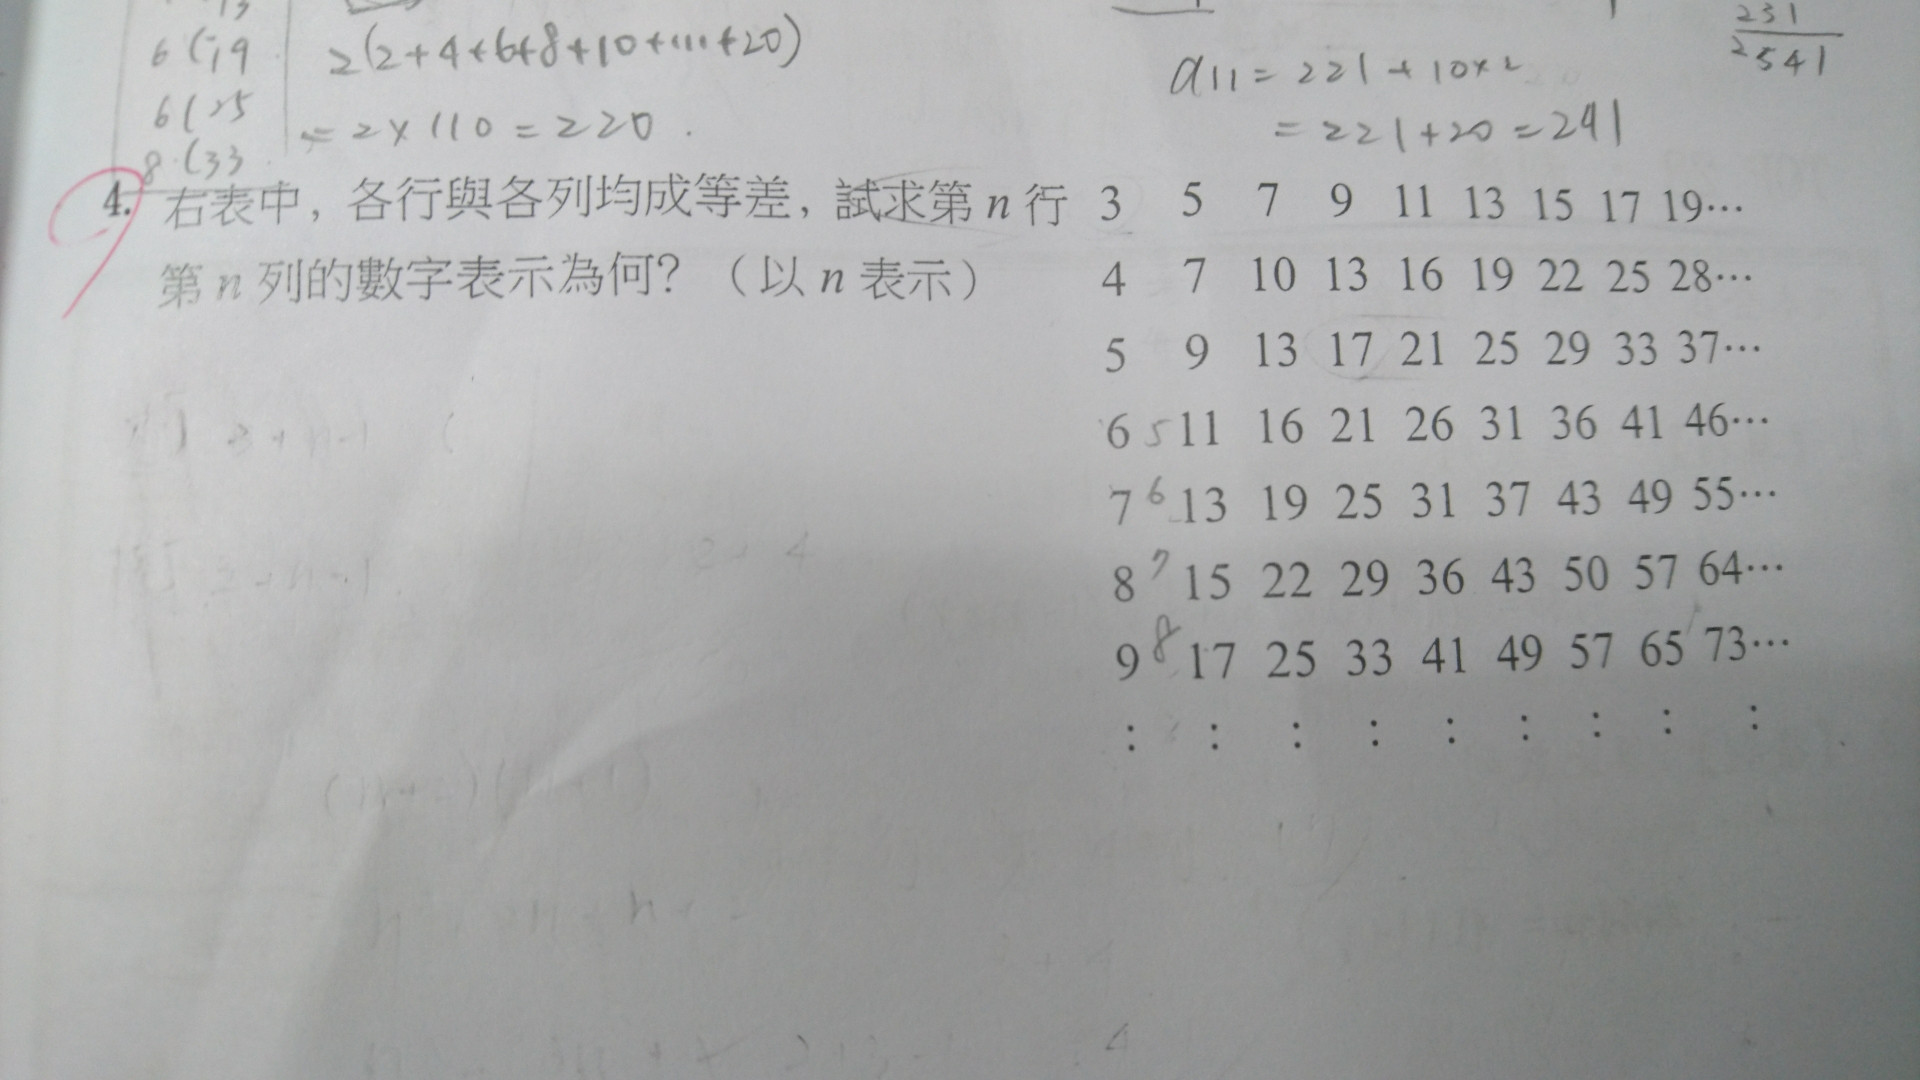 6 19
2(2+4+6+8+10+…+20)
a11 = 221 + 10×2
231
2541
6 25
= 2×110 = 220.
= 221+20 = 241
8 33
4. 右表中，各行與各列均成等差，試求第 n 行
第 n 列的數字表示為何？（以 n 表示）
3 5 7 9 11 13 15 17 19…
4 7 10 13 16 19 22 25 28…
5 9 13 17 21 25 29 33 37…
6 5 11 16 21 26 31 36 41 46…
7 6 13 19 25 31 37 43 49 55…
8 7 15 22 29 36 43 50 57 64…
9 8 17 25 33 41 49 57 65 73…
: : : : : : : : :